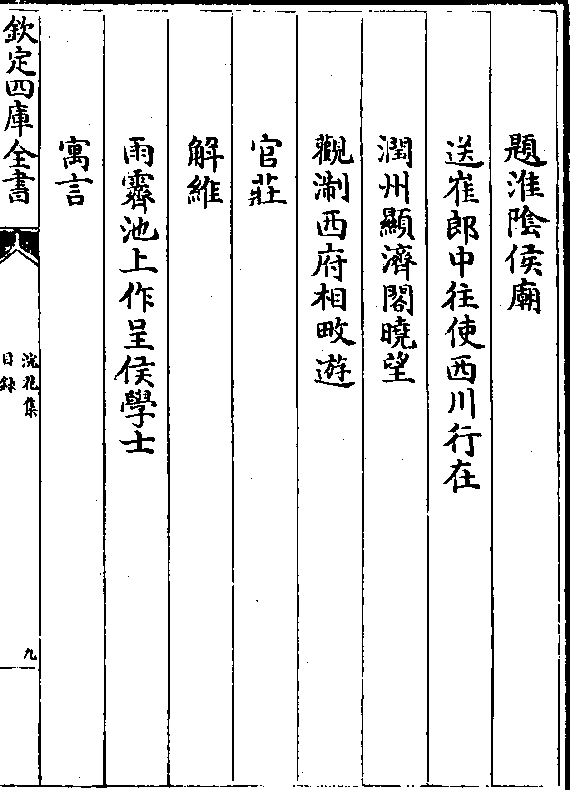 題淮陰侯廟
送崔郎中往使西川行在
潤州顯濟閣曉望
觀淛西府相畋遊
官莊
解維
雨霽池上作呈侯學士
寓言
欽定四庫全書
浣花集
目錄
九